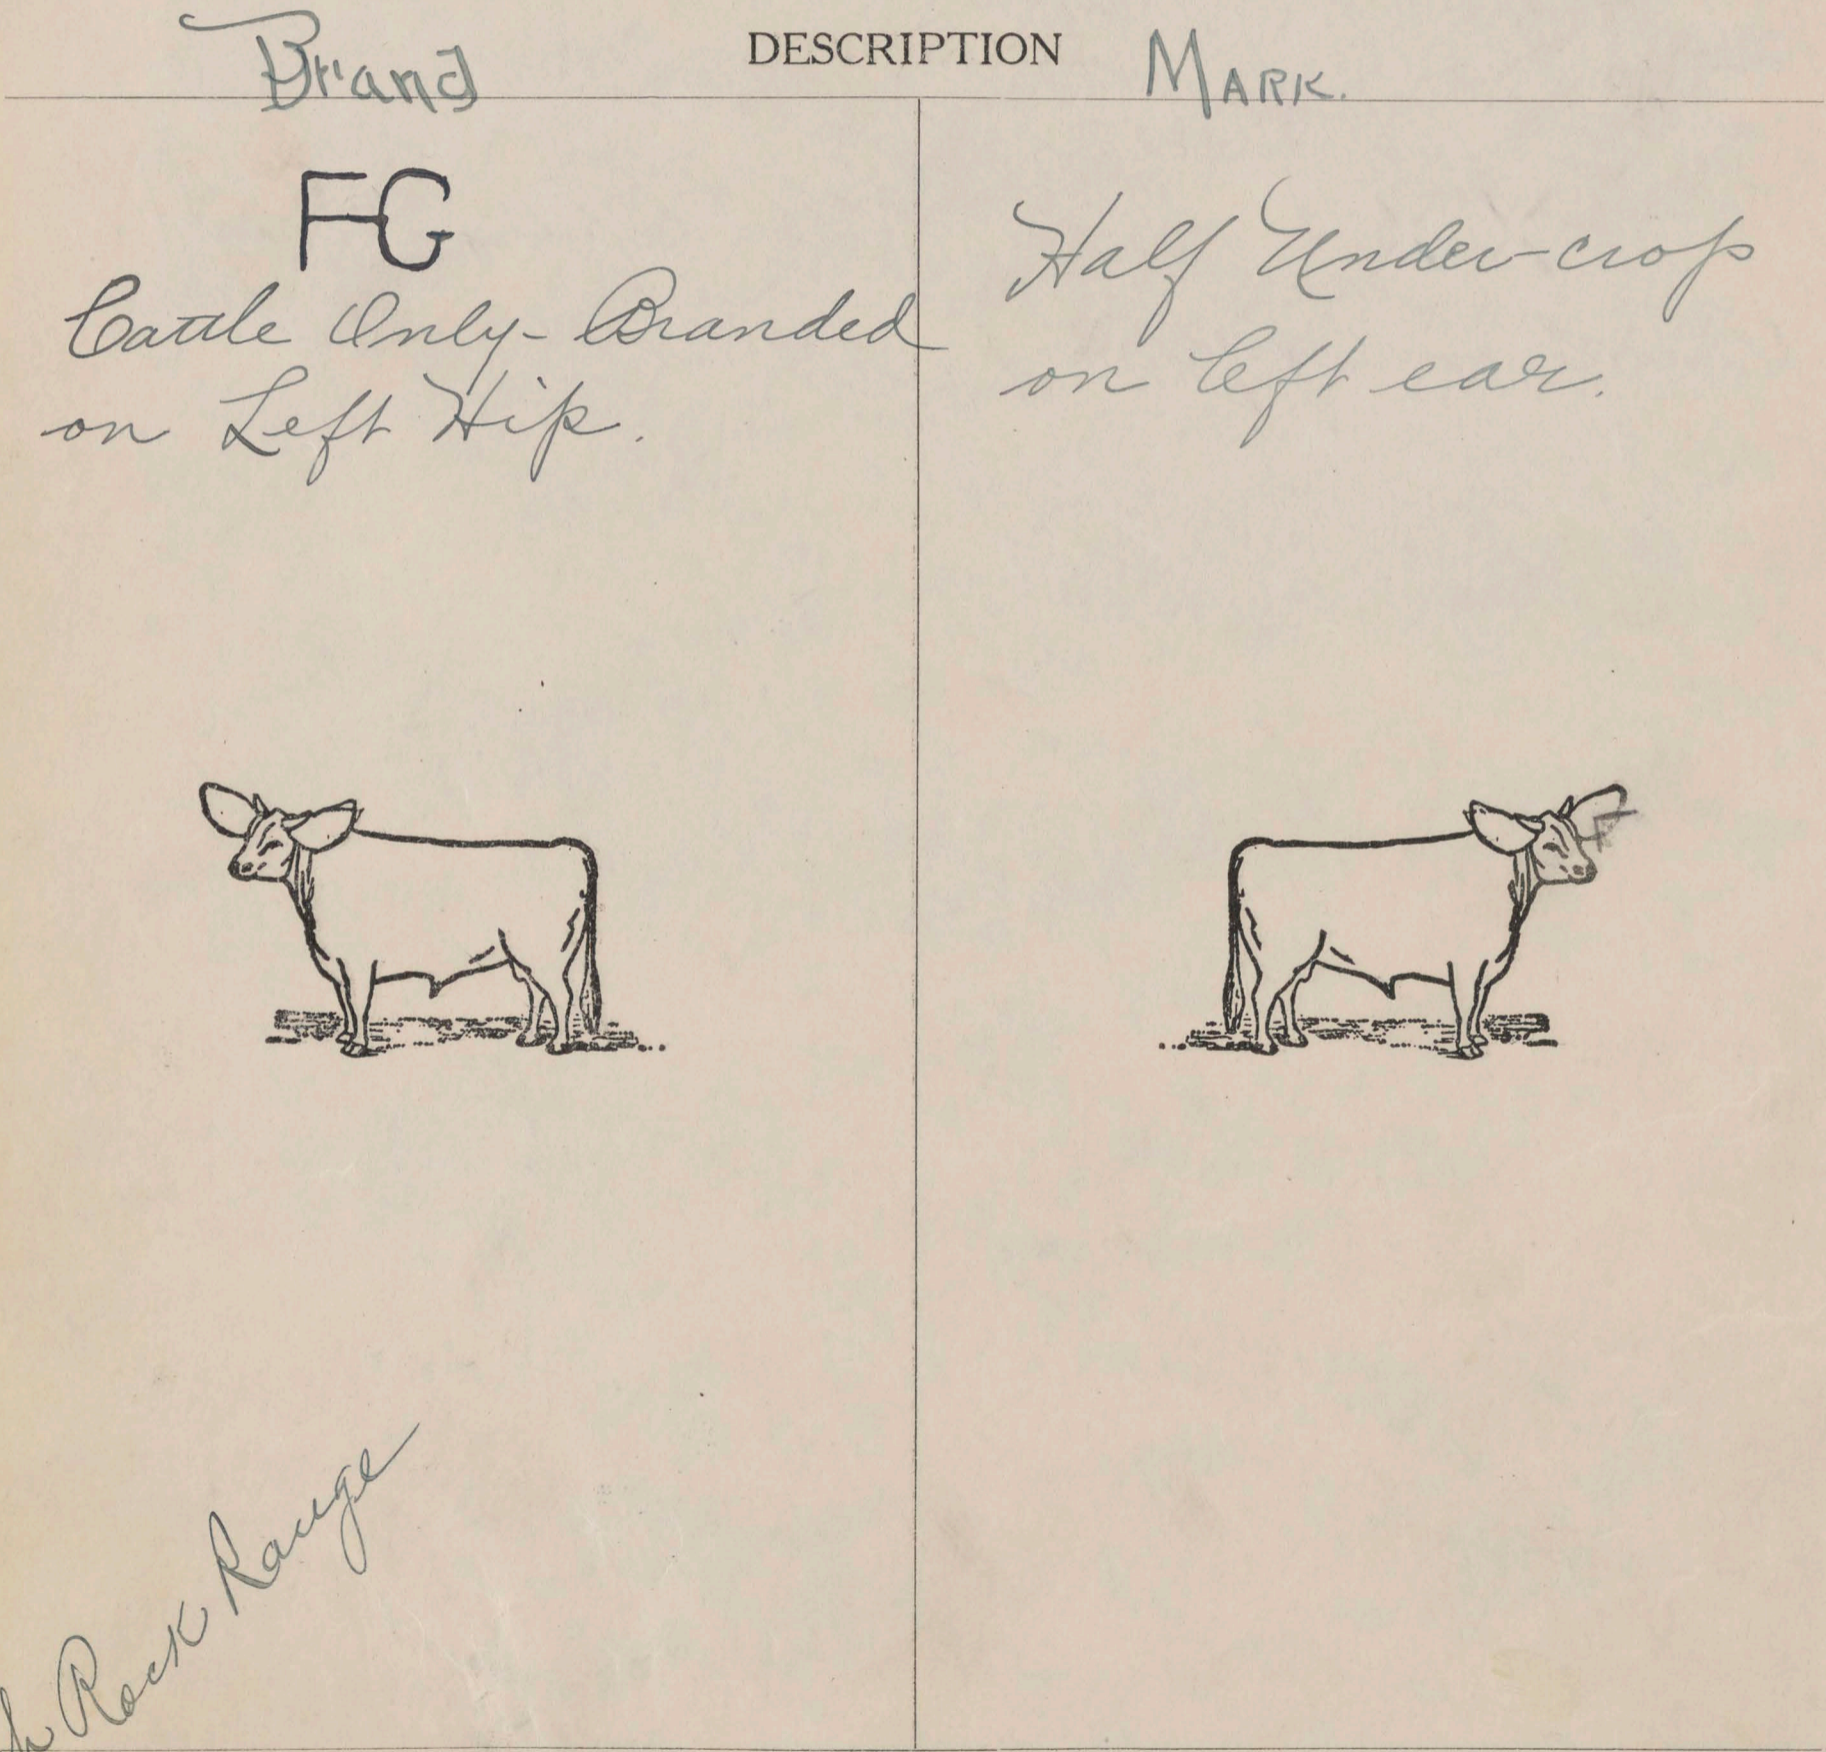 Brand DESCRIPTION MARK.
FG
Cattle Only - Branded
on Left Hip.
Half Under-crop
on left ear.
Rock Range